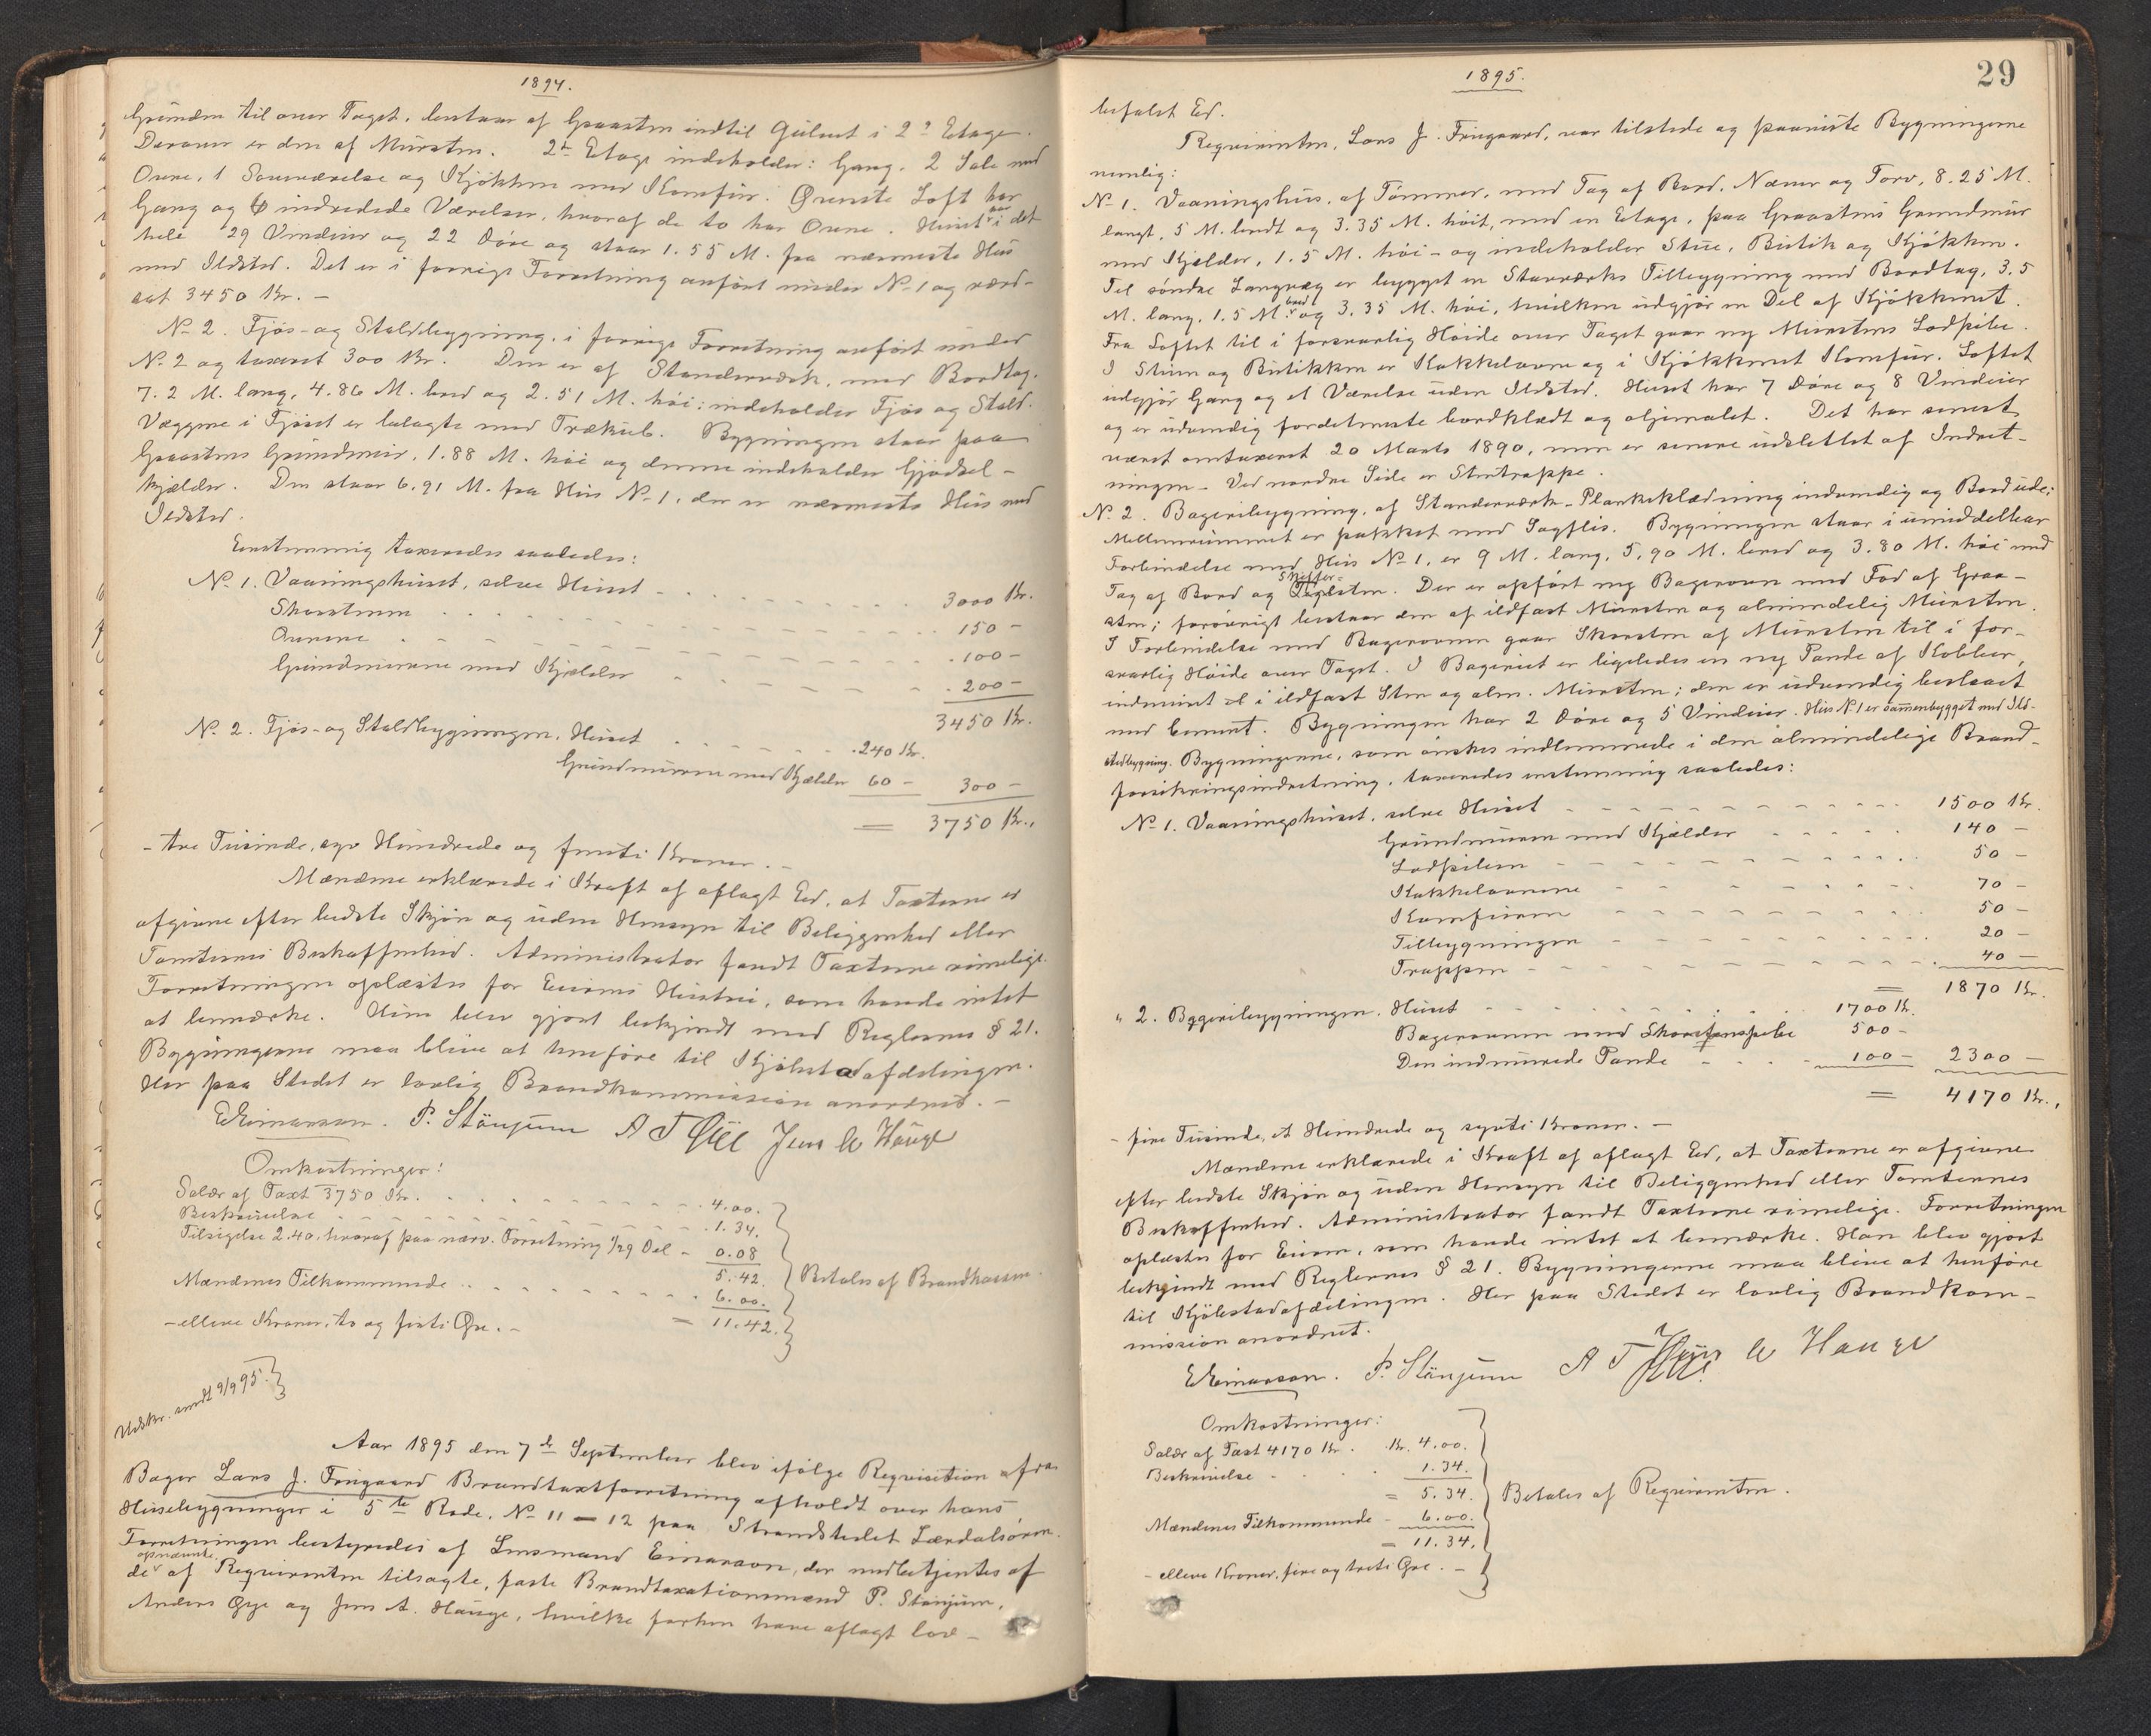 1894.
Grunden til over Taget, bestaar af Graasten indtil Gulvet i 2den Etage.
Derover er den af Mursten. 2den Etage indeholder: Gang, 2 Sale med
Ovne, 1 Soveværelse og Kjøkken med Komfur. Øverste Loft har
Gang og 6 indredede Værelser, hvoraf de to har Ovne. Huset har i det
hele 29 Vinduer og 22 Døre og staar 1.55 M. fra nærmeste Hus
med Ildsted. Det er i forrige Forretning anført under No 1 og værd-
sat 3450 Kr. -
No 2. Fjøs- og Staldbygning, i forrige Forretning anført under
No 2 og taxeret 300 Kr. Den er af Standerværk, med Bordtag.
7.2 M. lang, 4.86 M. bred og 2.51 M. høi; indeholder Fjøs og Stald.
Væggene i Fjøset er belagte med Trækub. Bygningen staar paa
Graastens Grundmur, 1.88 M. høi og denne indeholder Gjødsel-
kjælder. Den staar 6.91 M. fra Hus No 1, der er nærmeste Hus med
Ildsted.
Eenstemmig taxeredes saaledes:
No 1. Vaaningshuset, selve Huset - 3000 Kr.
Skorstenen 150 -
Ovnene 100 -
Grundmurene med Kjælder 200 -
3450 Kr.
No 2. Fjøs- og Staldbygningen, Huset 240 Kr.
Grundmuren med Kjælder 60 - 300 -
= 3750 Kr.,
- tre Tusinde, syv Hundrede og femti Kroner. -
Mændene erklærede i Kraft af aflagt Ed, at Taxterne er
afgivne efter bedste Skjøn og uden Hensyn til Beliggenhed eller
Tomternes Beskaffenhed. Administrator fandt Taxterne rimelige.
Forretningen oplæstes for Eierens Hustru, som havde intet
at bemærke. Hun blev gjort bekjendt med Reglernes § 21.
Bygningerne maa blive at henføre til Kjøbstadafdelingen.
Her paa Stedet er lovlig Brandkommission anordnet. -
E Einarson. P. Stänjum A T Øije Jens A Hauge
Omkostninger:
Salær af Taxt 3750 Kr. 4.00.
Beskrivelse 1.34.
Tilsigelse 2.40, hvoraf paa nærv. Forretning 1/29 Del - 0.08
5.42.
Mændenes Tilkommende 6.00.
= 11.42.
Betales af Brandkassen.
- elleve Kroner, to og firti Øre. -
Udskr. sendt 9/9 95.
Aar 1895 den 7de September blev ifølge Reqvisition fra
Bager Lars J. Friisgaard Brandtaxtforretning afholdt over hans
Husebygninger i 5te Rode, No 11 - 12 paa Strandstedet Lærdalsøren.
Forretningen bestyredes af Lensmand Einarson, der medbetjentes af
opnævnte
de af Reqvirenten tilsagte, faste Brandtaxationsmænd P. Stänjum,
Anders Øye og Jens A. Hauge, hvilke forhen have aflagt lov-
1895.
29
befalet Ed.
Reqvirenten, Lars J. Friisgaard, var tilstede og paaviste Bygningerne
nemlig:
No 1. Vaaningshus, af Tømmer, med Tag af Bord, Næver og Torv, 8.25 M.
langt, 5 M. bredt og 3.35 M. høit, med en Etage, paa Graastens Grundmur
med Kjelder, 1.5 M. høi - og indeholder Stue, Butik og Kjøkken.
Til søndre Langvæg er bygget en Stavværks Tilbygning med Bordtag, 3.5
M. lang, 1.5 M. bred og 3.35 M. høi, hvilken udgjør en Del af Kjøkkenet.
Fra Loftet til i forsvarlig Høide over Taget gaar ny Murstens Lodpibe.
I Stuen og Butikken er Kakkelovne og i Kjøkkenet Komfur. Loftet
udgjør Gang og et Værelse uden Ildsted. Huset har 7 Døre og 8 Vinduer
og er udvendig fordetmeste bordklædt og oljemalet. Det har senest
været omtaxeret 20 Marts 1890, men er senere udslettet af Indret-
ningen. Ved nordre Side er Stentrappe.
No 2. Bageribygning, af Standerværk - Plankeklædning indvendig og Bord ude;
Mellemrummet er pakket med Sagflis. Bygningen staar i umiddelbar
Forbindelse med Hus No 1, er 9 M. lang, 5,90 M. bred og 3.80 M. høi med
Skiffer-
Tag af Bord og Tagsten. Der er opført ny Bagerovn med Fod af Graa-
sten; forøvrigt bestaar den af ildfast Mursten og almindelig Mursten.
I Forbindelse med Bagerovnen gaar Skorsten af Mursten til i for-
svarlig Høide over Taget. I Bageriet er ligeledes en ny Pande af Kobber,
indmuret i ildfast Sten og alm. Mursten; den er udvendig beslaaet
med Cement. Bygningen har 2 Døre og 5 Vinduer. Hus No 1 er sammenbygget med Ild-
stedbygning. Bygningerne, som ønskes indlemmede i den almindelige Brand-
forsikringsindretning, taxeredes enstemmig saaledes:
No 1. Vaaningshuset, selve Huset 1500 Kr.
Grundmuren med Kjælder 140 -
Lodpiben 50 -
Kakkelovnene 70 -
Komfuren 50 -
Tilbygningen 20 -
Trappen 40 -
= 1870 Kr.
" 2. Bageribygningen, Huset 1700 Kr.
Bagerovnen med Skorstenspibe 500 -
Den indmurede Pande 100 - 2300 -
= 4170 Kr.,
- fire Tusinde, et Hundrede og sytti Kroner. -
Mændene erklærede i Kraft af aflagt Ed, at Taxterne er afgivne
efter bedste Skjøn og uden Hensyn til Beliggenhed eller Tomternes
Beskaffenhed. Administrator fandt Taxterne rimelige. Forretningen
oplæstes for Eieren, som havde intet at bemærke. Han blev gjort
bekjendt med Reglernes § 21. Bygningerne maa blive at henføre
til Kjøbstadafdelingen. Her paa Stedet er lovlig Brandkom-
mission anordnet.
E Einarson. P. Stänjum A T Øije Jens A Hauge
Omkostninger:
Salær af Taxt 4170 Kr. Kr. 4.00.
Beskrivelse 1.34.
= 5.34.
Mændenes Tilkommende - 6.00.
= 11.34.
Betales af Reqvirenten.
- elleve Kroner, fire og treti Øre. -